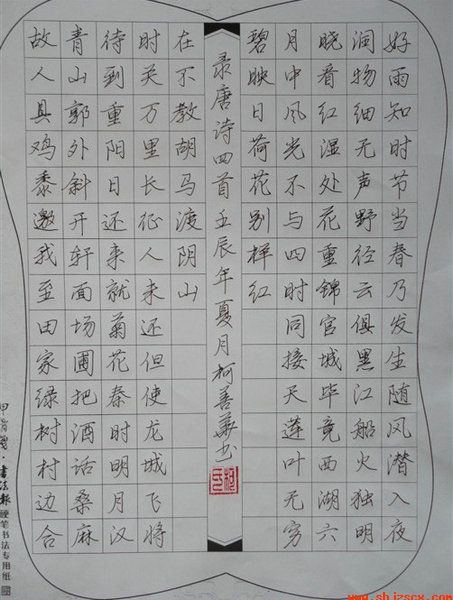 好雨知时节当春乃发生随风潜入夜
润物细无声野径云俱黑江船火独明
晓看红湿处花重锦官城毕竟西湖六
月中风光不与四时同接天莲叶无穷
碧映日荷花别样红
录唐诗四首壬辰年夏月柯善华书
在不教胡马渡阴山
时关万里长征人未还但使龙城飞将
待到重阳日还来就菊花秦时明月汉
青山郭外斜开轩面场圃把酒话桑麻
故人具鸡黍邀我至田家绿树村边合
书法报硬笔书法专用纸